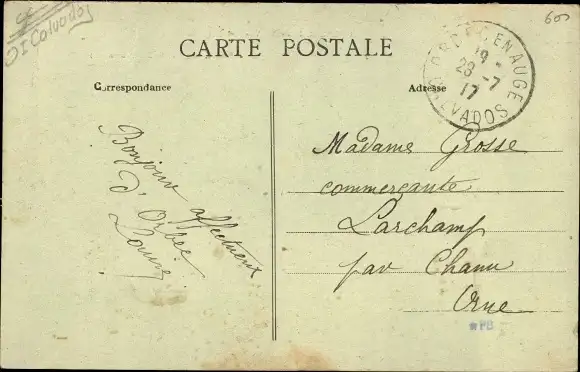 OI Calvados
600
CARTE POSTALE
Correspondance
Adresse
ORBEC-EN-AUGE
19 -
28 -7
17
CALVADOS
Bonjour affectueux
d'Orbec
Louise
Madame Grosse
commerçante
Larchamp
par Chanu
Orne
PB